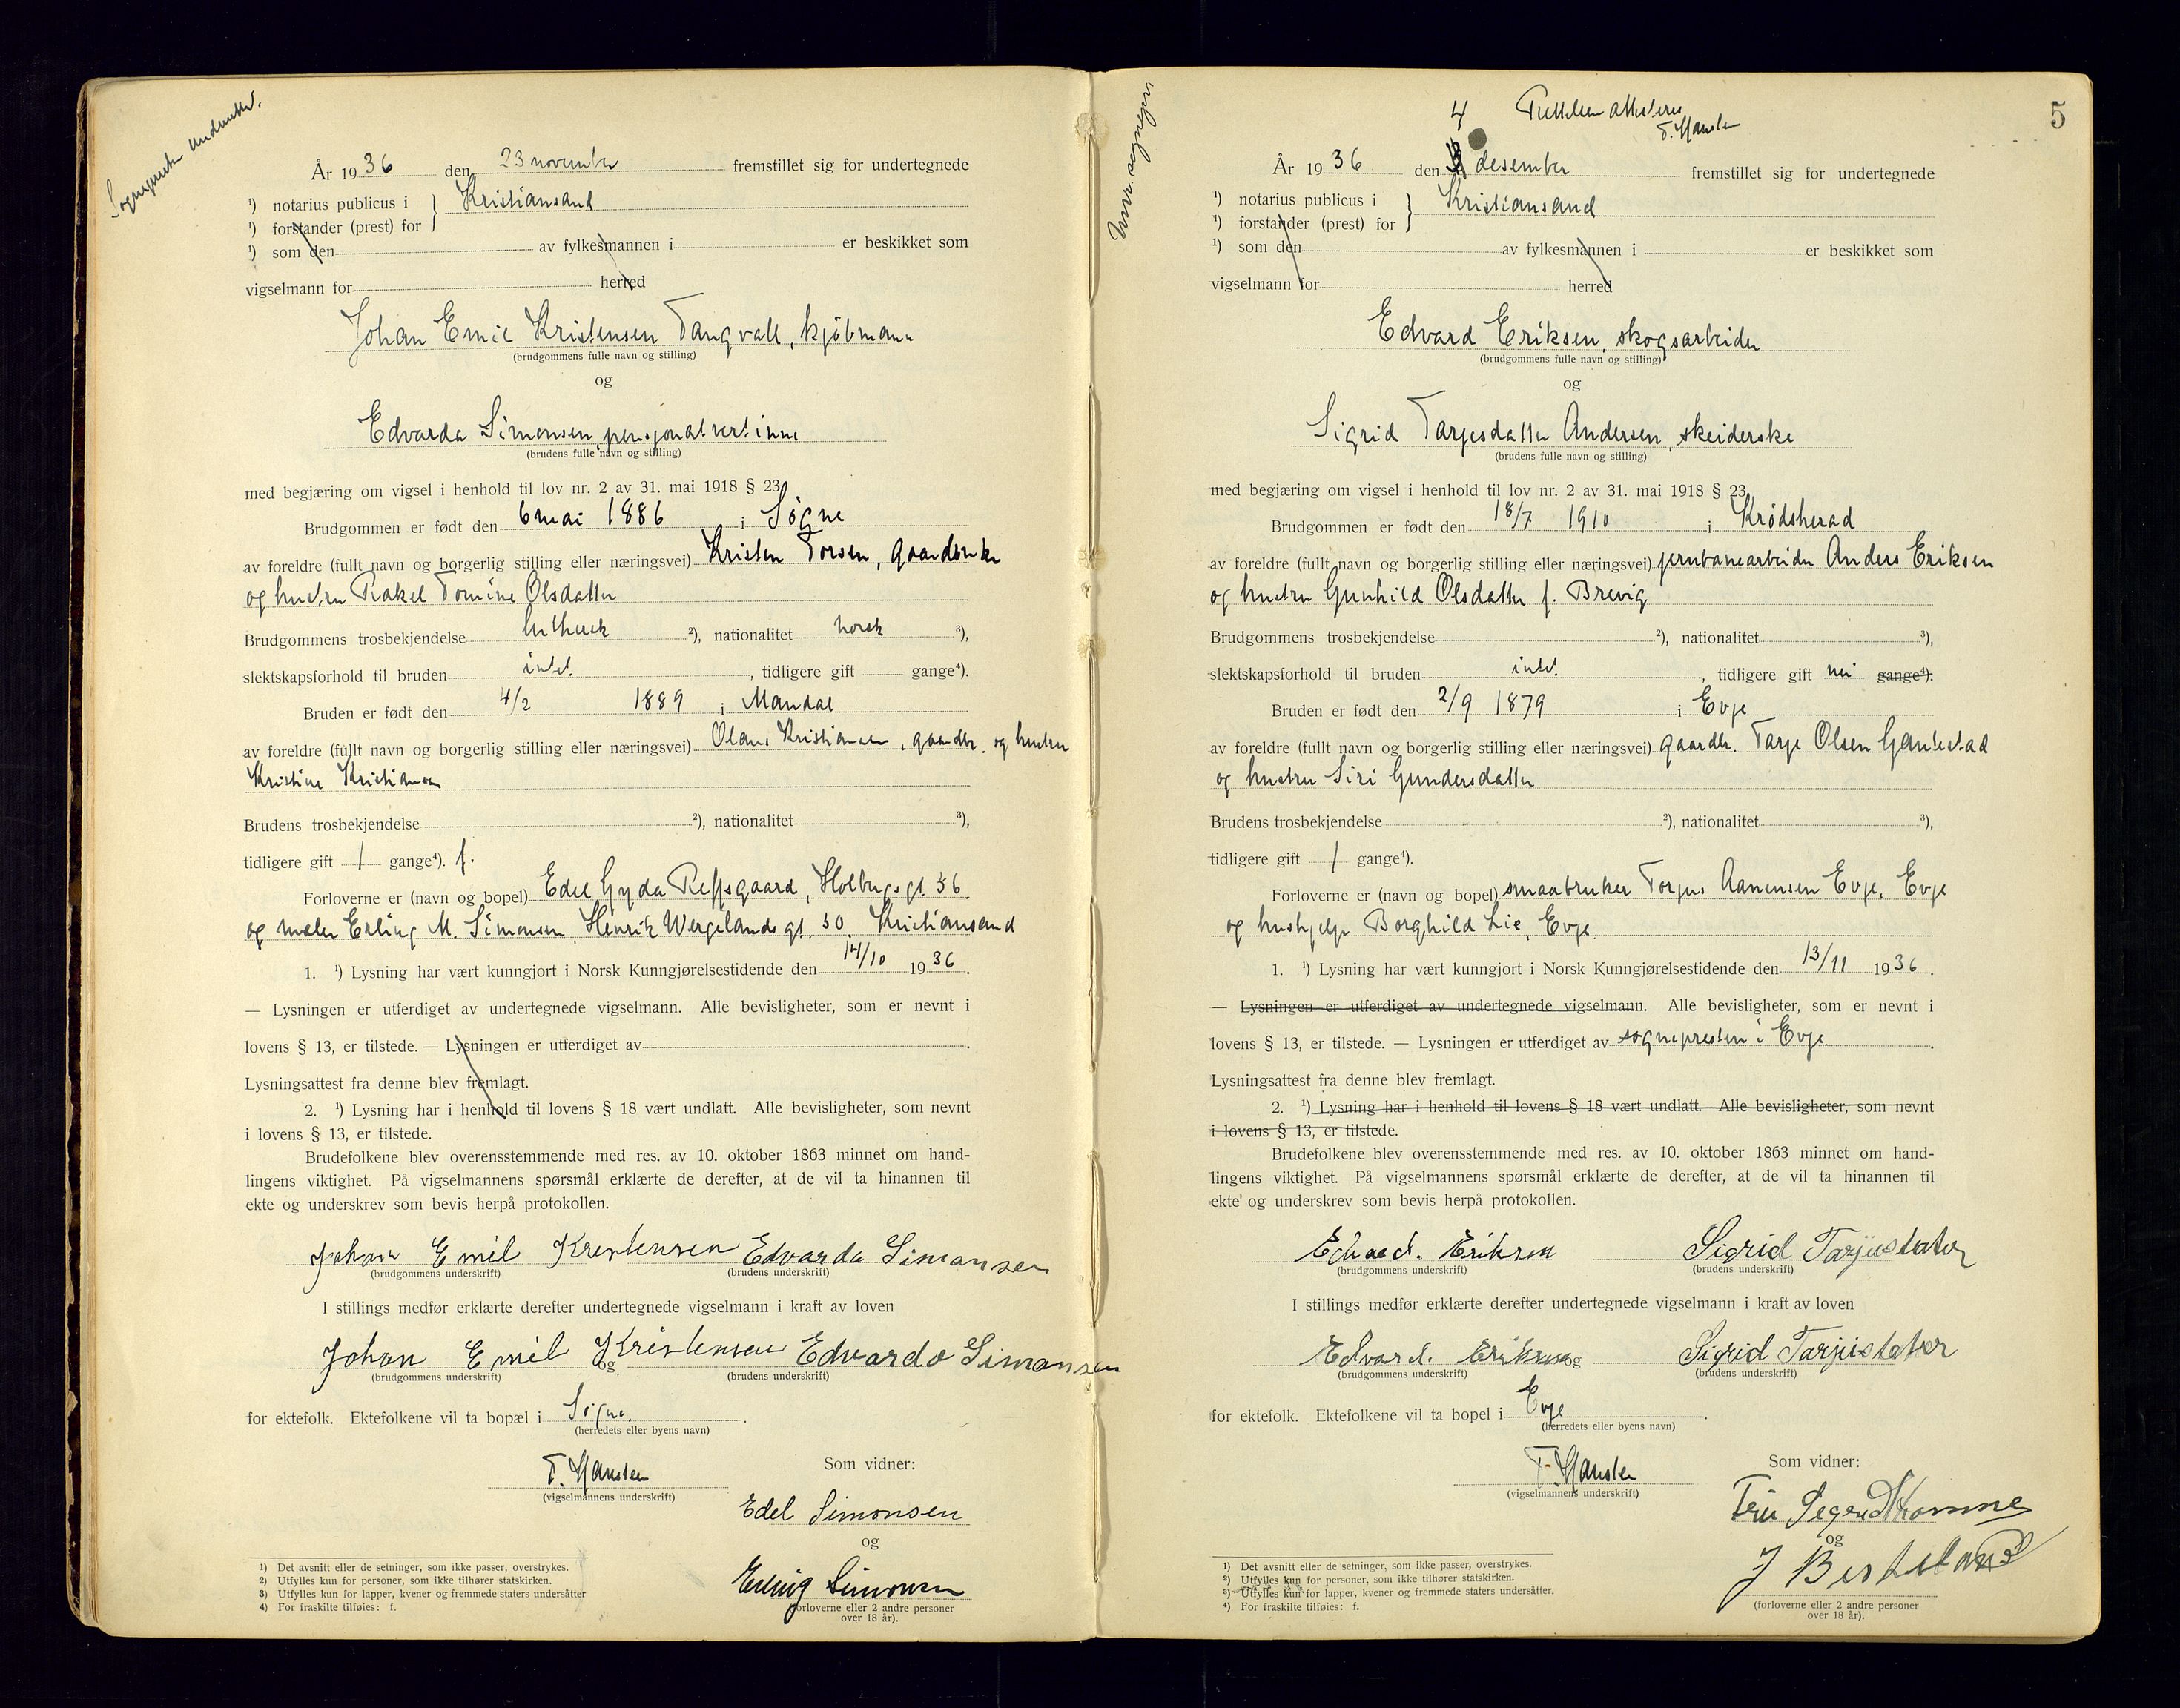 Sogneprest underrettet.
År 1936 den 23 november fremstillet sig for undertegnede
¹) notarius publicus i } Kristiansand
¹) forstander (prest) for
¹) som den av fylkesmannen i er beskikket som
vigselmann for herred
Johan Emil Kristensen Tangvall, kjøbmann
(brudgommens fulle navn og stilling)
og
Edvarda Simonsen, pensjonatvertinne
(brudens fulle navn og stilling)
med begjæring om vigsel i henhold til lov nr. 2 av 31. mai 1918 § 23.
Brudgommen er født den 6 mai 1886 i Søgne
av foreldre (fullt navn og borgerlig stilling eller næringsvei) Kristen Torsen, gaardbruker
og hustru Rakel Tomine Olsdatter
Brudgommens trosbekjendelse luthersk ²), nationalitet norsk ³),
slektskapsforhold til bruden intet. , tidligere gift gange⁴).
Bruden er født den 4/2 1889 i Mandal
av foreldre (fullt navn og borgerlig stilling eller næringsvei) Olaus Kristiansen, gaardbr. og hustru
Kristine Kristiansen
Brudens trosbekjendelse ²), nationalitet ³),
tidligere gift 1 gange⁴). f.
Forloverne er (navn og bopel) Edel Gyda Reppsgaard, Holbergs gt. 36.
og maler Erling M. Simonsen, Henrik Wergelands gt. 50, Kristiansand
1. ¹) Lysning har vært kunngjort i Norsk Kunngjørelsestidende den 14/10 1936.
— Lysningen er utferdiget av undertegnede vigselmann. Alle bevisligheter, som er nevnt i
lovens § 13, er tilstede. — Lysningen er utferdiget av .
Lysningsattest fra denne blev fremlagt.
2. ¹) Lysning har i henhold til lovens § 18 vært undlatt. Alle bevisligheter, som nevnt
i lovens § 13, er tilstede.
Brudefolkene blev overensstemmende med res. av 10. oktober 1863 minnet om hand-
lingens viktighet. På vigselmannens spørsmål erklærte de derefter, at de vil ta hinannen til
ekte og underskrev som bevis herpå protokollen.
Johan Emil Kristensen Edvarda Simonsen
(brudgommens underskrift) (brudens underskrift)
I stillings medfør erklærte derefter undertegnede vigselmann i kraft av loven
Johan Emil Kristensen og Edvarda Simonsen
(brudgommens underskrift) (brudens underskrift)
for ektefolk. Ektefolkene vil ta bopæl i Søgne.
(herredets eller byens navn)
Som vidner:
T. Hansten
(vigselmannens underskrift)
Edel Simonsen
og
Erling Simonsen
(forloverne eller 2 andre personer
over 18 år).
1) Det avsnitt eller de setninger, som ikke passer, overstrykes.
2) Utfylles kun for personer, som ikke tilhører statskirken.
3) Utfylles kun for lapper, kvener og fremmede staters undersåtter
4) For fraskilte tilføies: f.
5
4 Rettelsen attesteres
T. Hansten
År 1936 den desember fremstillet sig for undertegnede
¹) notarius publicus i } Kristiansand
¹) forstander (prest) for
¹) som den av fylkesmannen i er beskikket som
vigselmann for herred
Edvard Eriksen, skogsarbeider
(brudgommens fulle navn og stilling)
og
Sigrid Tarjesdatter Andersen, skeiderske
(brudens fulle navn og stilling)
med begjæring om vigsel i henhold til lov nr. 2 av 31. mai 1918 § 23.
Brudgommen er født den 18/7 1910 i Krødsherad
av foreldre (fullt navn og borgerlig stilling eller næringsvei) jernbanearbeider Anders Eriksen
og hustru Gunhild Olsdatter f. Brevig
Brudgommens trosbekjendelse ²), nationalitet ³),
slektskapsforhold til bruden intet. , tidligere gift nei gange⁴).
Bruden er født den 2/9 1879 i Evje
av foreldre (fullt navn og borgerlig stilling eller næringsvei) gaardbr. Tarje Olsen Gautestad
og hustru Siri Gundersdatter
Brudens trosbekjendelse ²), nationalitet ³),
tidligere gift 1 gange⁴).
Forloverne er (navn og bopel) smaabruker Torjus Aanensen Evje, Evje
og hushjelp Borghild Lie, Evje.
1. ¹) Lysning har vært kunngjort i Norsk Kunngjørelsestidende den 13/11 1936.
— Lysningen er utferdiget av undertegnede vigselmann. Alle bevisligheter, som er nevnt i
lovens § 13, er tilstede. — Lysningen er utferdiget av sognepresten i Evje.
Lysningsattest fra denne blev fremlagt.
2. ¹) Lysning har i henhold til lovens § 18 vært undlatt. Alle bevisligheter, som nevnt
i lovens § 13, er tilstede.
Brudefolkene blev overensstemmende med res. av 10. oktober 1863 minnet om hand-
lingens viktighet. På vigselmannens spørsmål erklærte de derefter, at de vil ta hinannen til
ekte og underskrev som bevis herpå protokollen.
Edvard. Eriksen Sigrid Tarjustator
(brudgommens underskrift) (brudens underskrift)
I stillings medfør erklærte derefter undertegnede vigselmann i kraft av loven
Edvard. Eriksen og Sigrid Tarjistator
(brudgommens underskrift) (brudens underskrift)
for ektefolk. Ektefolkene vil ta bopel i Evje.
(herredets eller byens navn)
Som vidner:
T. Hansten
(vigselmannens underskrift)
Fru Segrid
og
J
(forloverne eller 2 andre personer
over 18 år).
1) Det avsnitt eller de setninger, som ikke passer, overstrykes.
2) Utfylles kun for personer, som ikke tilhører statskirken.
3) Utfylles kun for lapper, kvener og fremmede staters undersåtter.
4) For fraskilte tilføies: f.